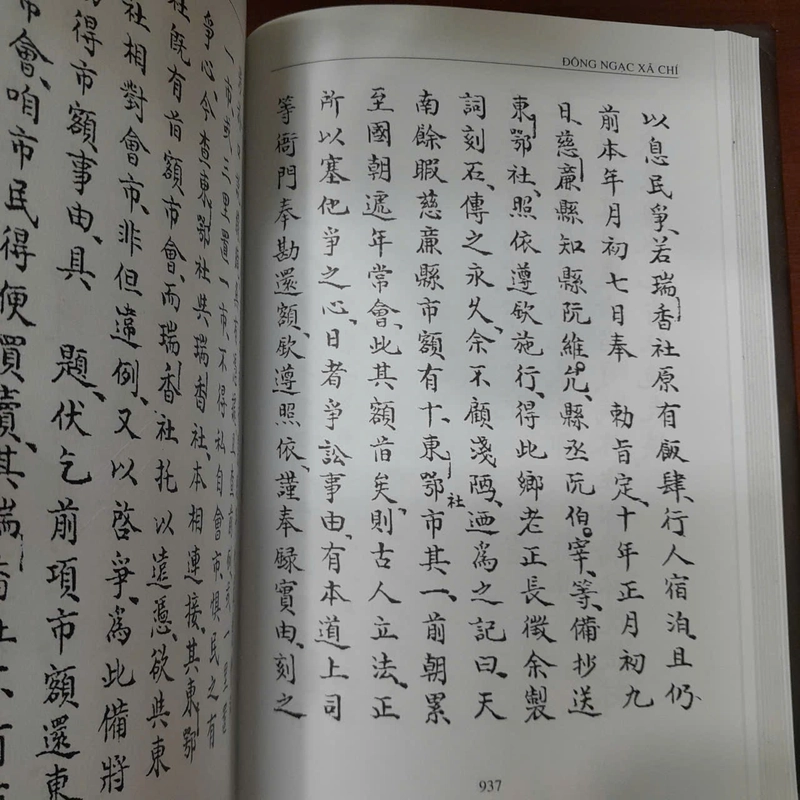 ĐÔNG NGẠC XÃ CHÍ
以息民爭、若瑞香社原有飯肆、行人宿泊、且仍
前本年月初七日奉　勅旨定、十年正月初九
日、慈廉縣知縣阮維允、縣丞阮伯宰、等、備抄送
東鄂社、照依遵欽施行、得此鄉老正長徵余製
詞刻石、傳之永久、余不顧淺陋、迺爲之記曰、天
南餘暇慈廉縣市額有十、東鄂社市其一、前朝累
至國朝遞年常會、此其額旨矣、則古人立法、正
所以塞他爭之心、日者爭訟事由、有本道上司
等衙門奉勘還額、欽遵照依、謹奉録實由、刻之
937
一市或三里置一市、不得私自會市、惧民之有
爭心、今查東鄂社與瑞香社、本相連接、其東鄂
社既有旨額市會、而瑞香社托以遠憑、欲與東
社相對會市、非但違例、又以啓爭、爲此備將
得市額事由、具　題、伏乞前項市額還東
會、咱市民得便買賣、其瑞香社不有